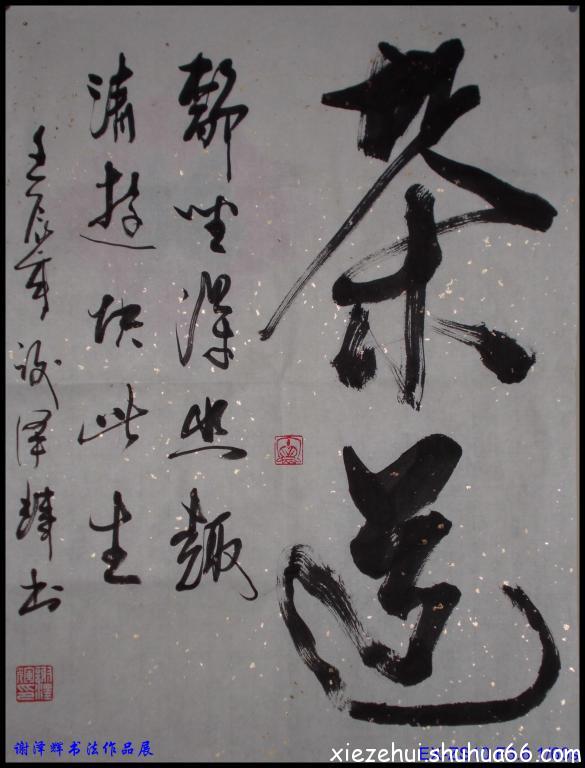 茶道
静坐得幽趣
清遊快此生
壬辰年谢泽辉书
谢泽辉书法作品展
xiezehuishuhua66.com